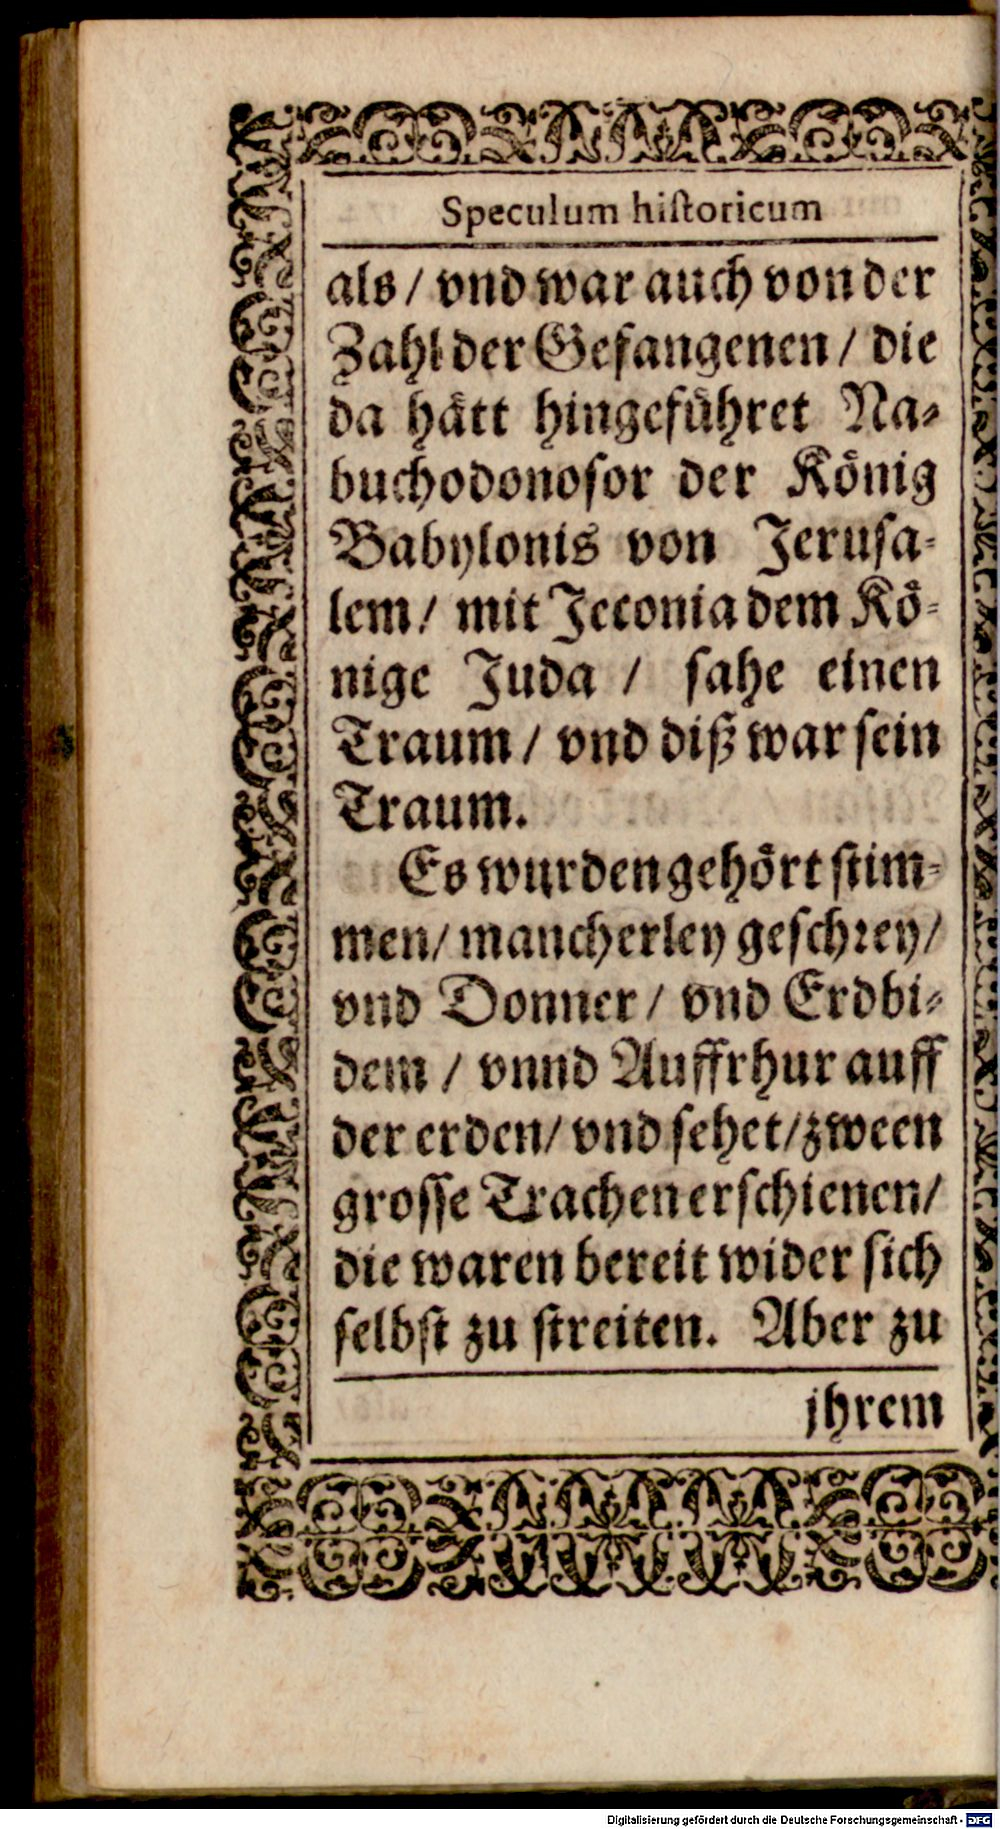 Speculum hiſtoricum
als / vnd war auch von der
Zahl der Gefangenen / die
da haͤtt hingefuͤhret Na⸗
buchodonoſor der Koͤnig
Babylonis von Jeruſa⸗
lem / mit Jeconia dem Koͤ⸗
nige Juda / ſahe einen
Traum / vnd diß war ſein
Traum.
Es wurden gehoͤrt ſtim⸗
men / mancherley geſchꝛey /
vnd Donner / vnd Erdbi⸗
dem / vnnd Auffrhur auff
der erden / vnd ſehet / zween
groſſe Trachen erſchienen /
die waren bereit wider ſich
ſelbſt zu ſtreiten. Aber zu
jhrem
Digitalisierung gefördert durch die Deutsche Forschungsgemeinschaft - DFG